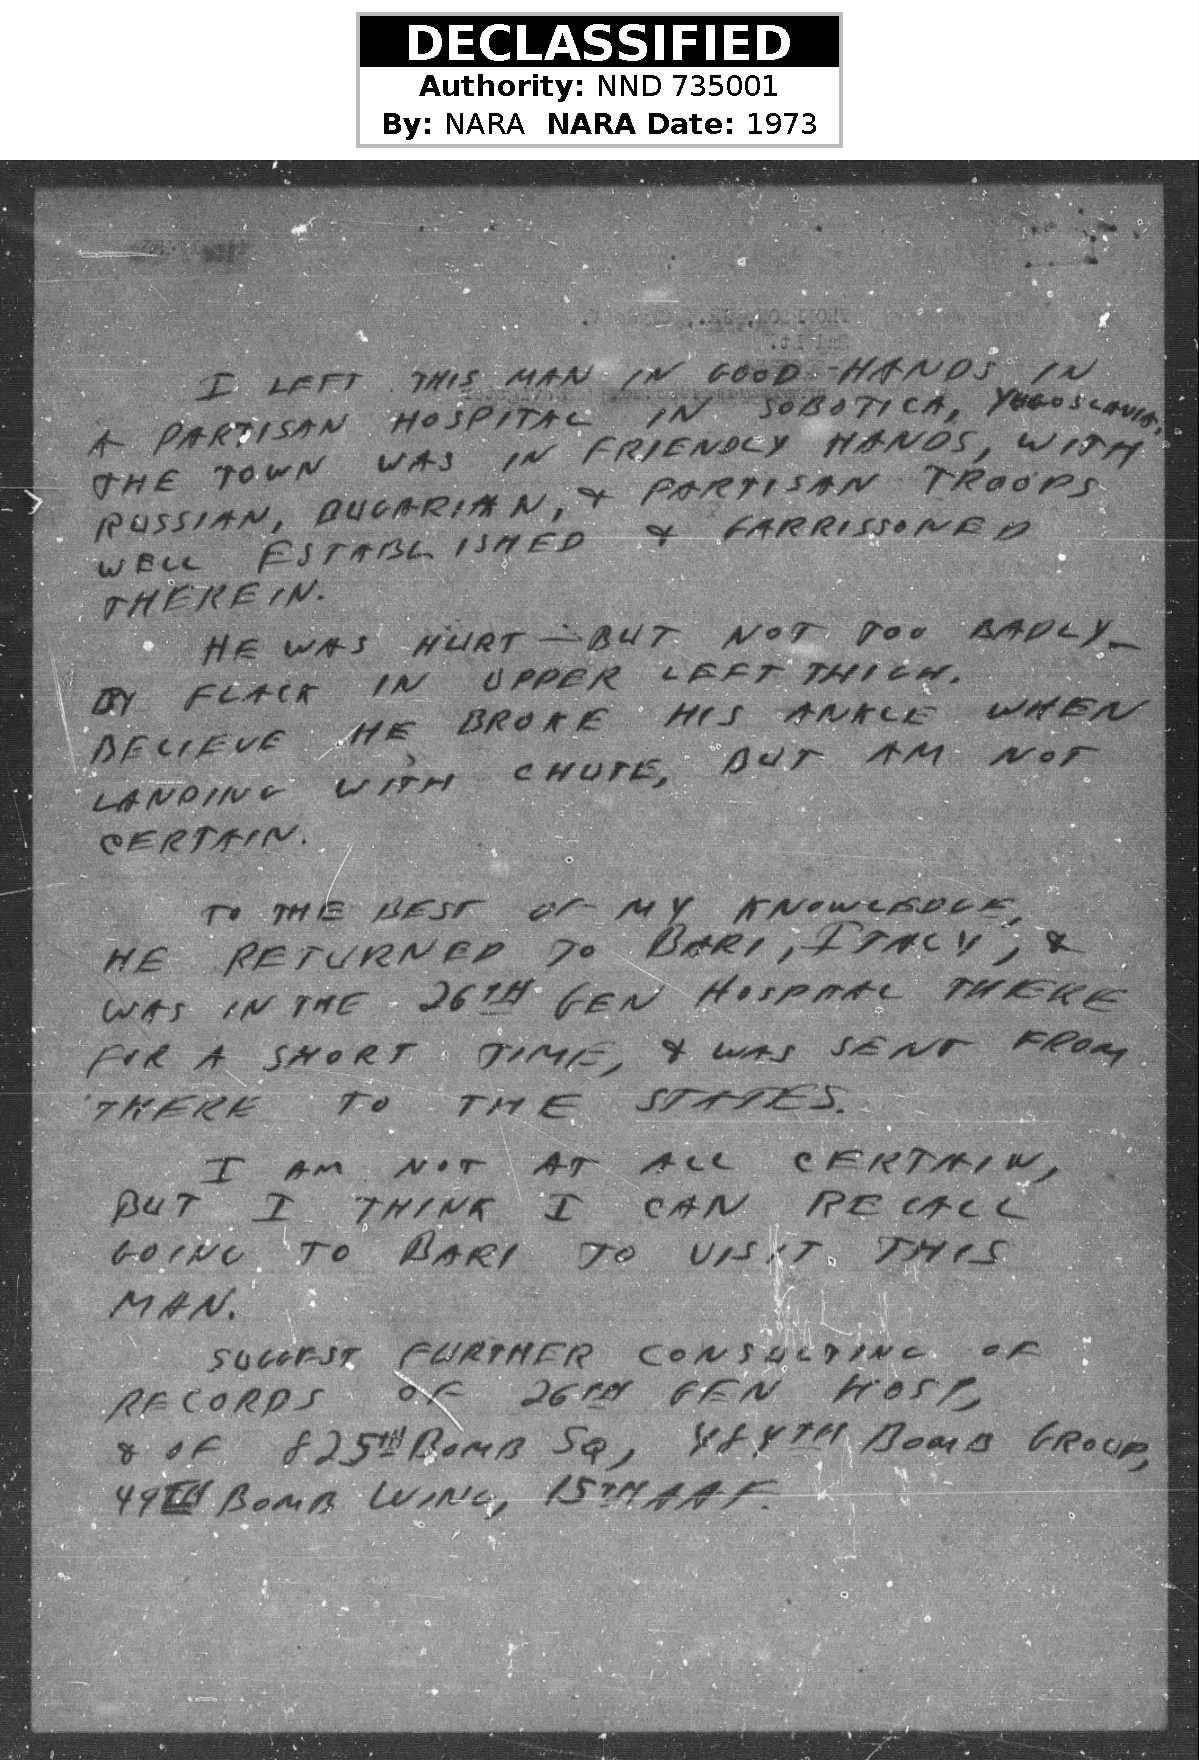 DECLASSIFIED
Authority: NND 735001
By: NARA NARA Date: 1973
I LEFT THIS MAN IN GOOD HANDS IN
A PARTISAN HOSPITAL IN SOBOTICA, YUGOSLAVIA.
THE TOWN WAS IN FRIENDLY HANDS, WITH
RUSSIAN, BUGARIAN, & PARTISAN TROOPS
WELL ESTABLISHED & GARRISSONED
THEREIN.
HE WAS HURT - BUT NOT TOO BADLY -
BY FLACK IN UPPER LEFT THIGH.
BELIEVE HE BROKE HIS ANKLE WHEN
LANDING WITH CHUTE, BUT AM NOT
CERTAIN.
TO THE BEST OF MY KNOWLEDGE,
HE RETURNED TO BARI, ITALY, &
WAS IN THE 26TH GEN HOSPITAL THERE
FOR A SHORT TIME, & WAS SENT FROM
THERE TO THE STATES.
I AM NOT AT ALL CERTAIN,
BUT I THINK I CAN RECALL
GOING TO BARI TO VISIT THIS
MAN.
SUGGEST FURTHER CONSULTING OF
RECORDS OF 26TH GEN HOSP,
& OF 825TH BOMB SQ, 484TH BOMB GROUP,
49TH BOMB WING, 15TH AAF.